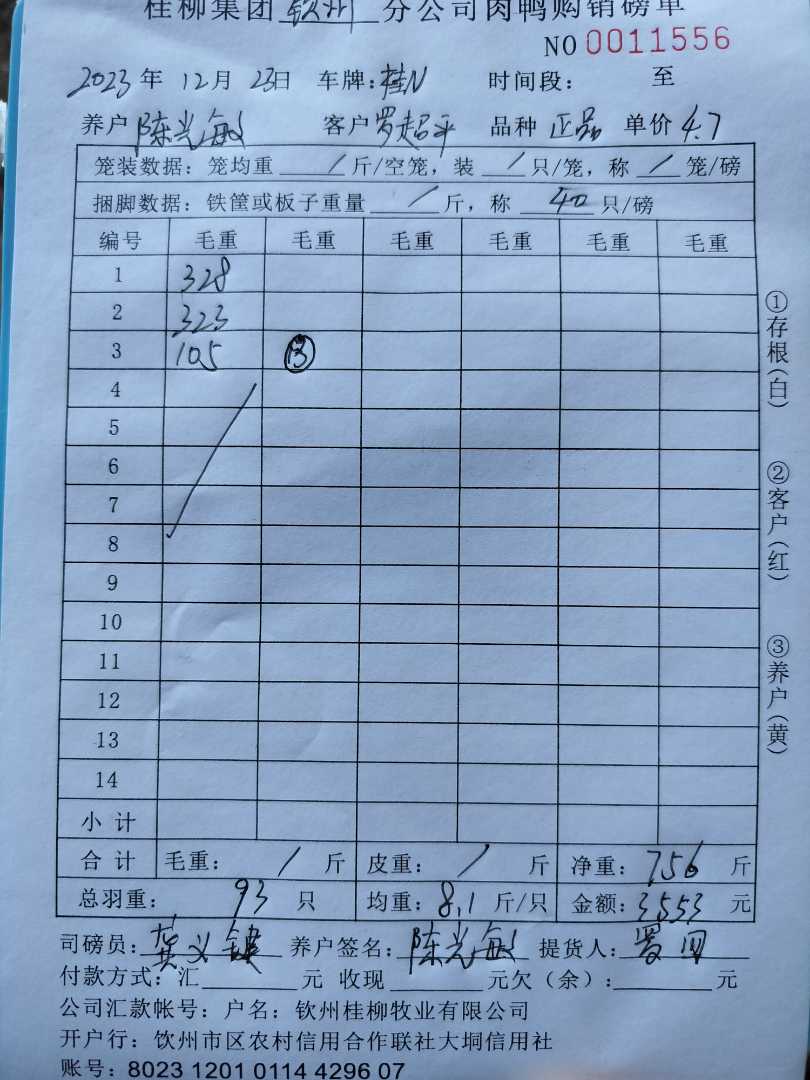 桂柳集团 钦州 分公司肉鸭购销磅单
NO 0011556
2023 年 12 月 23 日 车牌:桂N 时间段: 至
养户 陈光敏 客户 罗超平 品种 正品 单价 4.7
笼装数据: 笼均重 / 斤/空笼, 装 / 只/笼, 称 / 笼/磅
捆脚数据: 铁筐或板子重量 / 斤, 称 40 只/磅
编号 毛重 毛重 毛重 毛重 毛重 毛重
1 328
2 323
3 105 ⑬
4
5
6
7
8
9
10
11
12
13
14
小计
合计 毛重: / 斤 皮重: / 斤 净重: 756 斤
总羽重: 93 只 均重: 8.1 斤/只 金额: 3553 元
司磅员: 龚义键 养户签名: 陈光敏 提货人:
付款方式: 汇 元 收现 元欠(余): 元
公司汇款帐号: 户名: 钦州桂柳牧业有限公司
开户行: 钦州市区农村信用合作联社大垌信用社
账号: 8023 1201 0114 4296 07
①存根(白)
②客户(红)
③养户(黄)